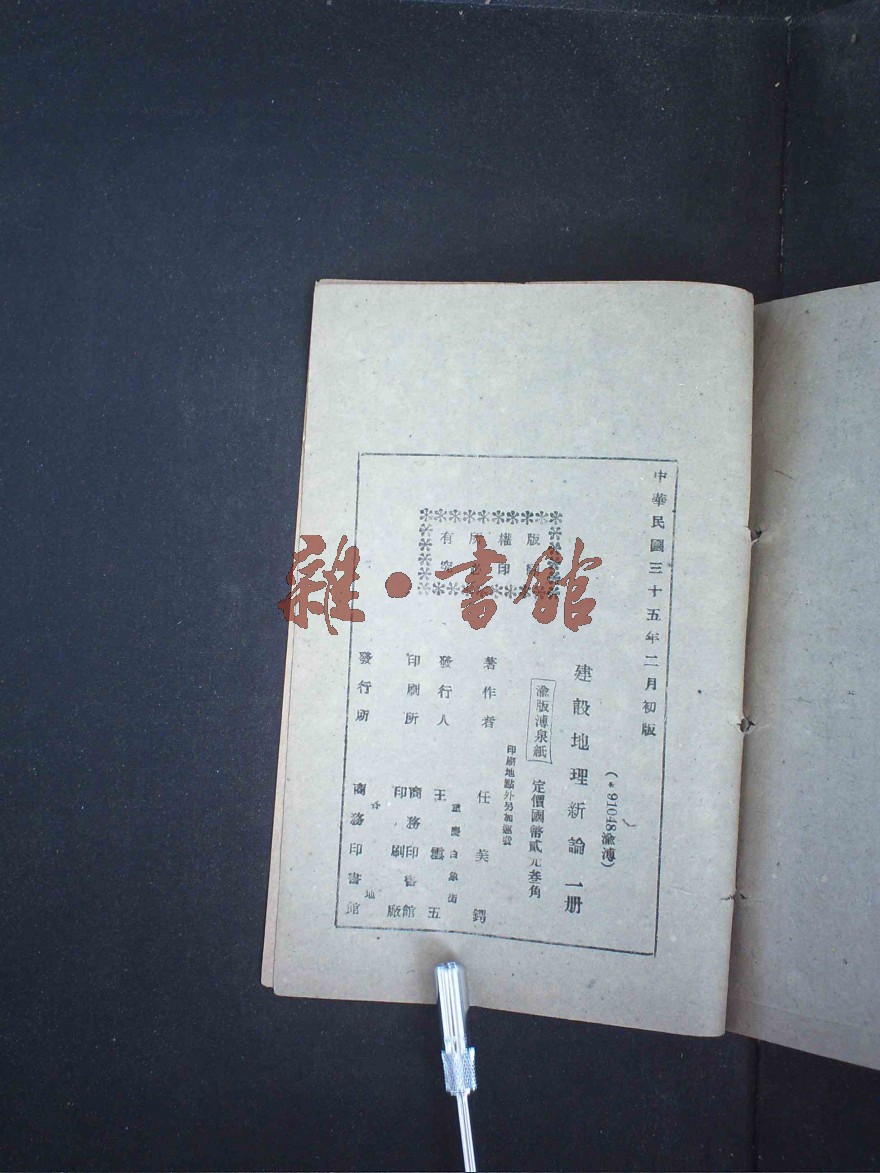 中華民國三十五年二月初版
(*91048渝溥)
建設地理新論 一册
渝版溥泉紙 定價國幣貳元叁角
印刷地點外另加運費
版權所有
印必究
著作者 任美鍔
重慶白象街
發行人 王雲五
印刷所 商務印書館
印刷廠
各地
發行所 商務印書館
雜·書館